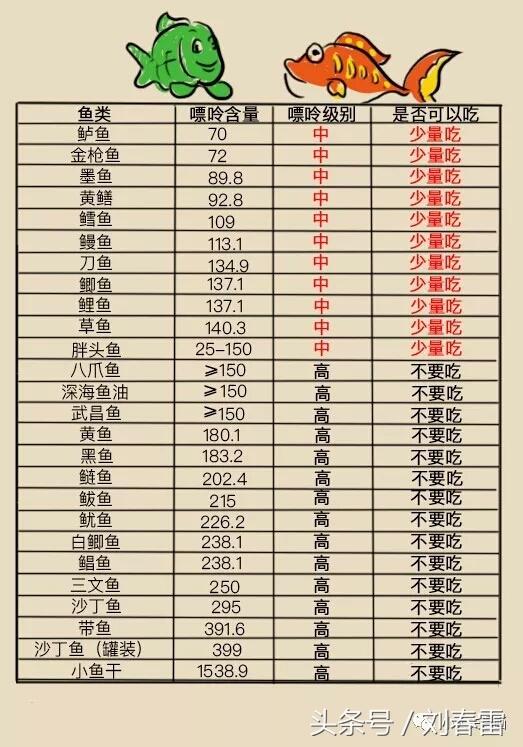 鱼类 嘌呤含量 嘌呤级别 是否可以吃
鲈鱼 70 中 少量吃
金枪鱼 72 中 少量吃
墨鱼 89.8 中 少量吃
黄鳝 92.8 中 少量吃
鳕鱼 109 中 少量吃
鳗鱼 113.1 中 少量吃
刀鱼 134.9 中 少量吃
鲫鱼 137.1 中 少量吃
鲤鱼 137.1 中 少量吃
草鱼 140.3 中 少量吃
胖头鱼 25-150 中 少量吃
八爪鱼 ⩾150 高 不要吃
深海鱼油 ⩾150 高 不要吃
武昌鱼 ⩾150 高 不要吃
黄鱼 180.1 高 不要吃
黑鱼 183.2 高 不要吃
鲢鱼 202.4 高 不要吃
鲅鱼 215 高 不要吃
鱿鱼 226.2 高 不要吃
白鲫鱼 238.1 高 不要吃
鲳鱼 238.1 高 不要吃
三文鱼 250 高 不要吃
沙丁鱼 295 高 不要吃
带鱼 391.6 高 不要吃
沙丁鱼（罐装） 399 高 不要吃
小鱼干 1538.9 高 不要吃
头条号／刘春雷